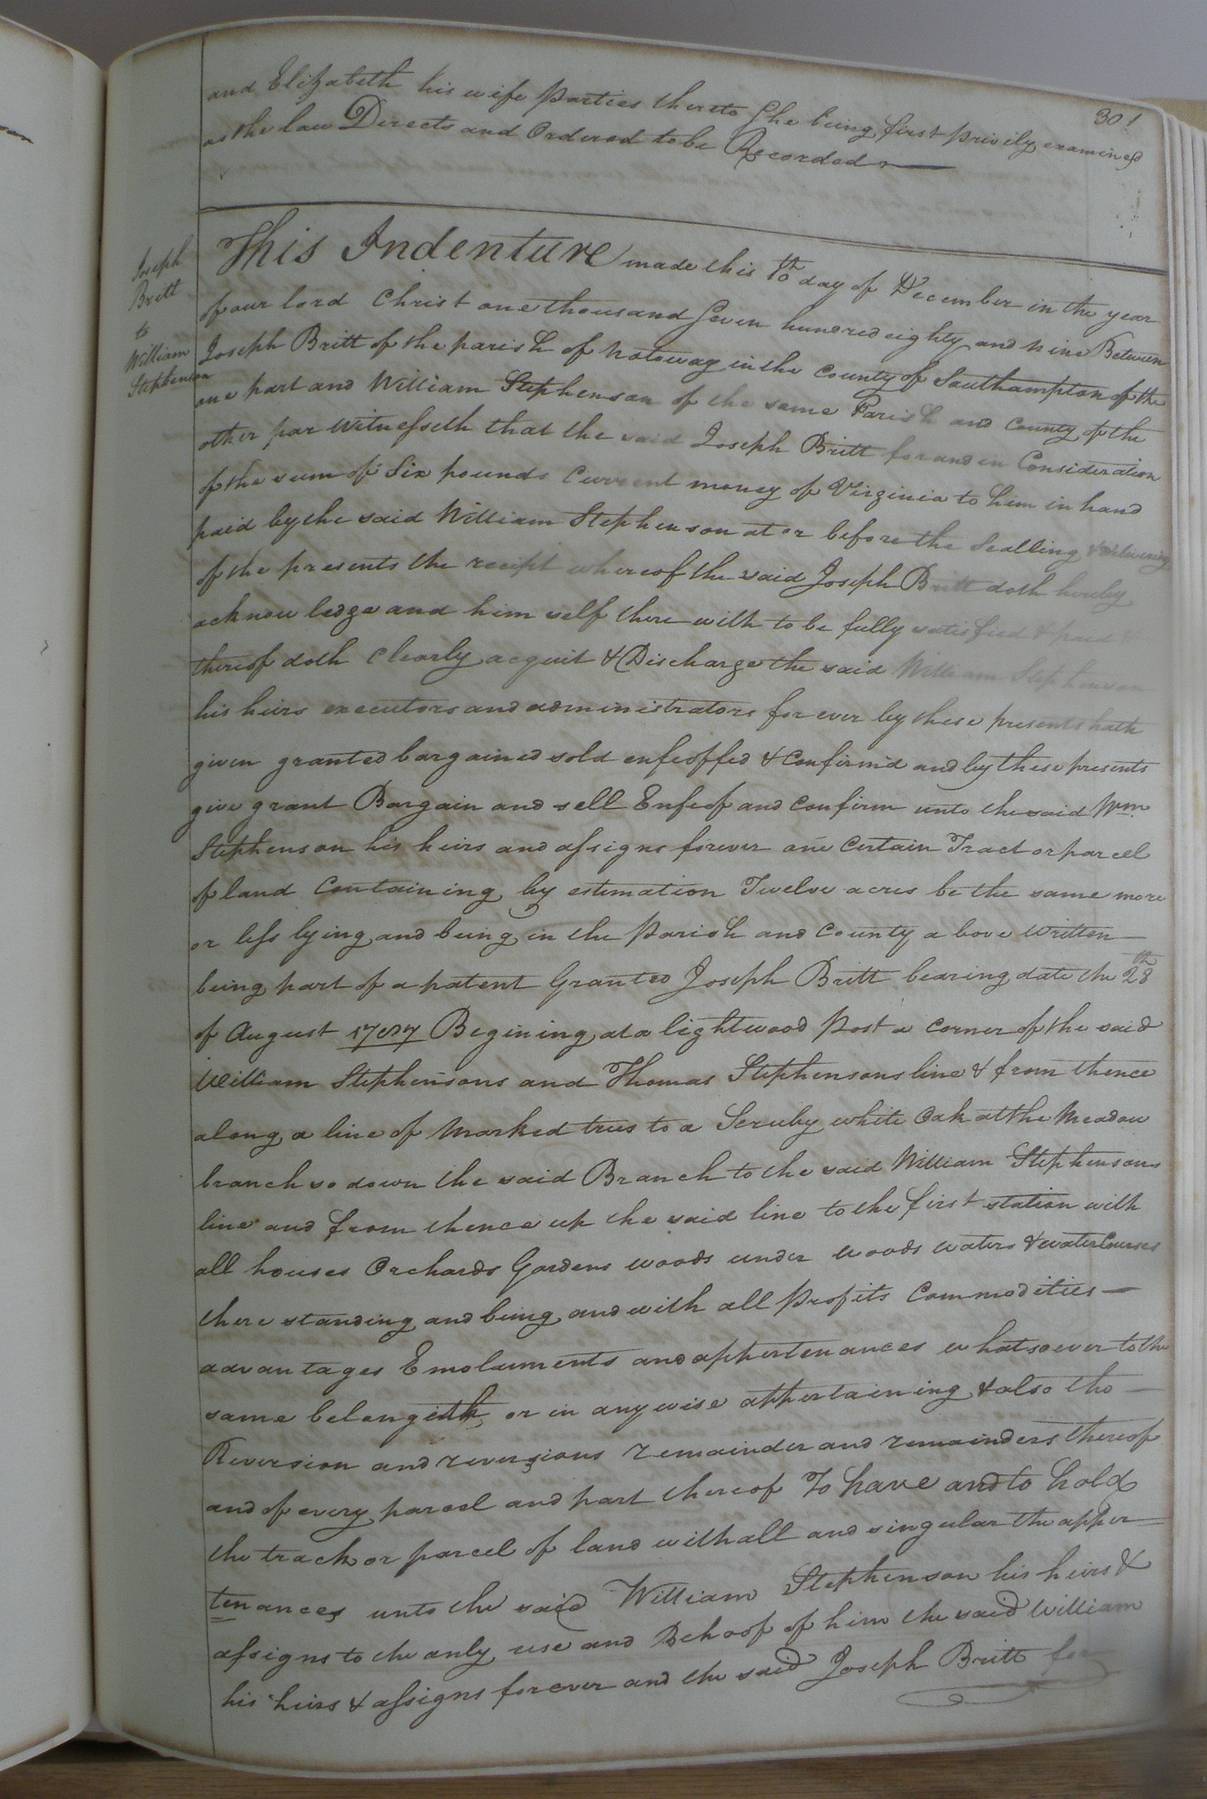 301
and Elizabeth his wife Parties thereto She being first privily examined
as the law Directs and Ordered to be Recorded
Joseph
Britt
to
William
Stephenson
This Indenture made this 10th day of December in the year
of our lord Christ one thousand Seven hundred eighty and nine Between
Joseph Britt of the parish of Notoway in the County of Southampton of the
one part and William Stephenson of the same Parish and County of the
other par Witnesseth that the said Joseph Britt for and in Consideration
of the sum of Six pounds Current money of Virginia to him in hand
paid by the said William Stephenson at or before the Sealling & delivering
of the presents the receipt whereof the said Joseph Britt doth hereby
acknowledge and him self there with to be fully satisfied & paid &
thereof doth Clearly acquit & Discharge the said William Stephenson
his heirs executors and administrators for ever by these presents hath
given granted bargained sold enfeoffed & Confirmd and by these presents
give grant Bargain and sell Enfeof and Confirm unto the said Wm.
Stephenson his heirs and assigns forever one Certain Tract or parcel
of land Containing by estimation Twelve acres be the same more
or less lying and being in the Parish and County above Written
being part of a patent Granted Joseph Britt bearing date the 28th
of August Begining at a lightwood Post a corner of the said
William Stephensons and Thomas Stephensons line & from thence
along a line of Marked trees to a Scruby white Oak at the Meadow
branch so down the said Branch to the said William Stephensons
line and from thence up the said line to the first station with
all houses Orchards Gardens woods under woods waters & water Courses
there standing and being and with all Profits Commodities
advantages Emoluments and appertenances whatsoever to the
same belongeth or in anywise appertaining & also the
Reversion and reversions remainder and remainders thereof
and of every parcel and part thereof To have and to hold
the track or parcel of land with all and singular the apper
tenances unto the said William Stephenson his heirs &
assigns to the only use and Behoof of him the said William
his heirs & assigns forever and the said Joseph Britt for